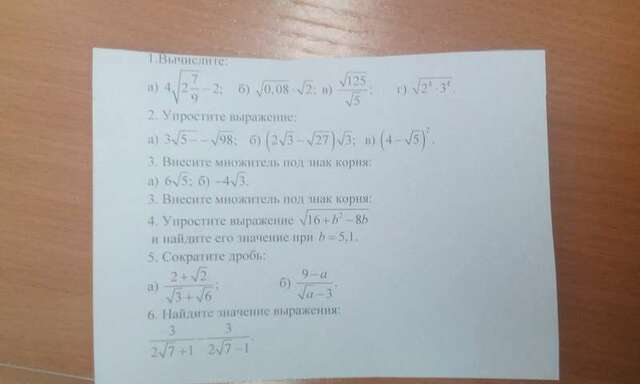 1.Вычислите:
а) 4√(2 7/9) − 2; б) √0,08 · √2; в) √125/√5; г) √(2⁸ · 3⁴).
2. Упростите выражение:
а) 3√5 − − √98; б) (2√3 − √27)√3; в) (4 − √5)².
3. Внесите множитель под знак корня:
а) 6√5; б) −4√3.
3. Внесите множитель под знак корня:
4. Упростите выражение √(16 + b² − 8b)
и найдите его значение при b = 5,1.
5. Сократите дробь:
а) (2 + √2)/(√3 + √6); б) (9 − a)/(√a − 3).
6. Найдите значение выражения:
3/(2√7 + 1) − 3/(2√7 − 1).